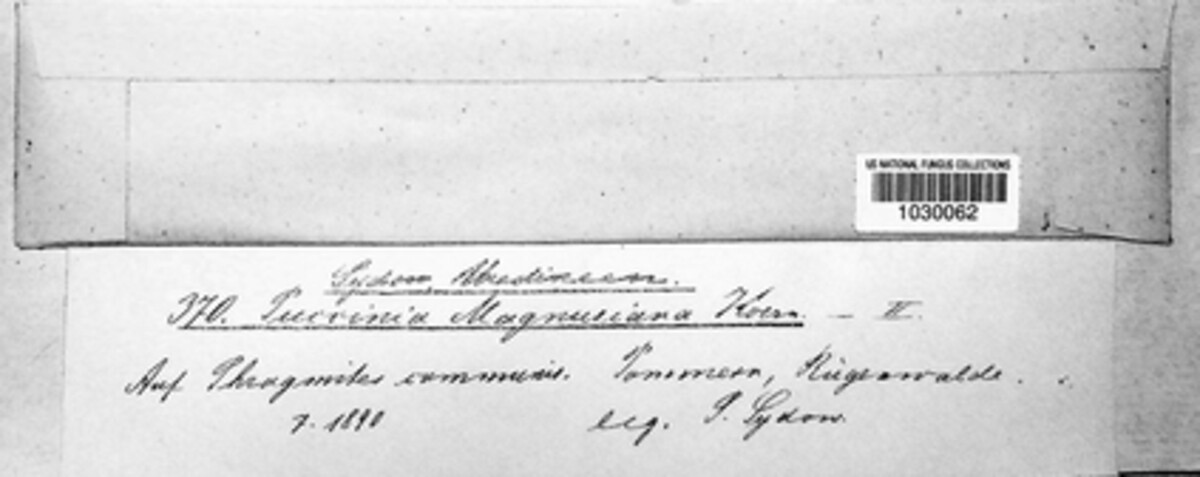 US NATIONAL FUNGUS COLLECTIONS
1030062
Sydow, Uredineen.
370. Puccinia Magnusiana Koern. — II.
Auf Phragmites communis. Pommern, Rügenwalde.
7. 1890 leg. P. Sydow.